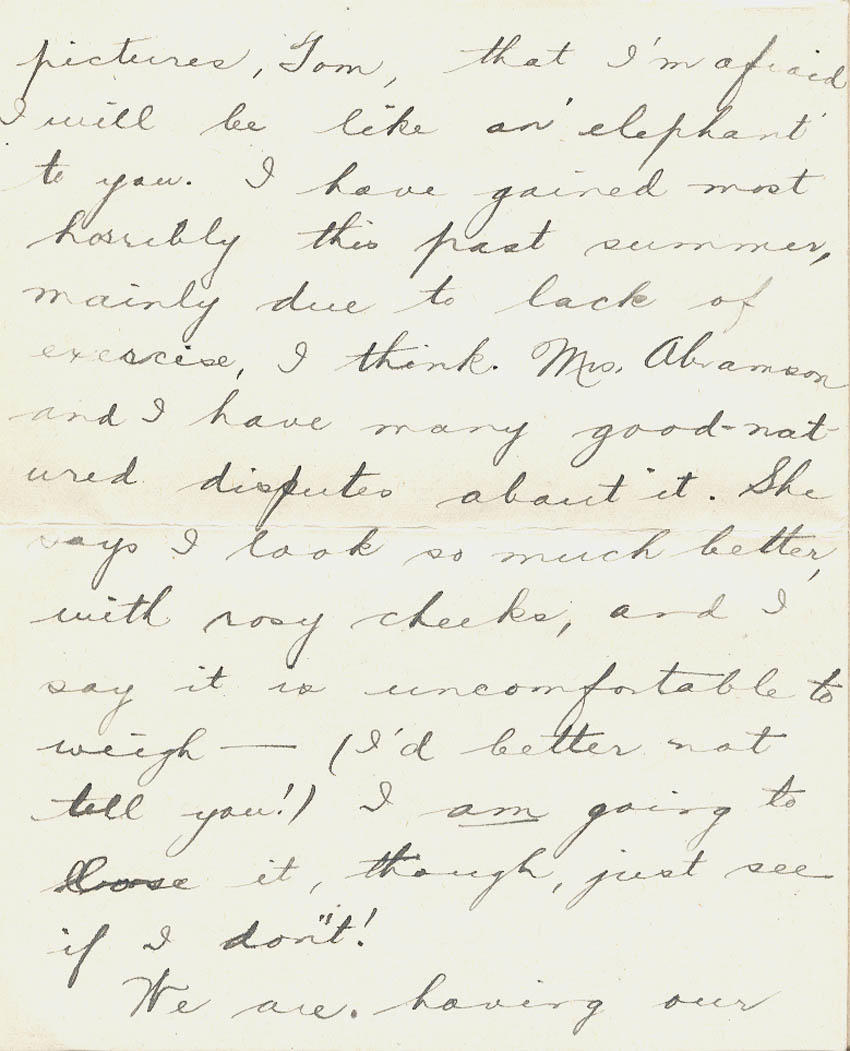 pictures, Tom, that I'm afraid
I will be like an elephant
to you. I have gained most
horribly this past summer,
mainly due to lack of
exercise, I think. Mrs. Abramson
and I have many good-nat-
ured disputes about it. She
says I look so much better,
with rosy cheeks, and I
say it is uncomfortable to
weigh — (I'd better not
tell you!) I am going to
lose it, though, just see
if I don't!
We are having our